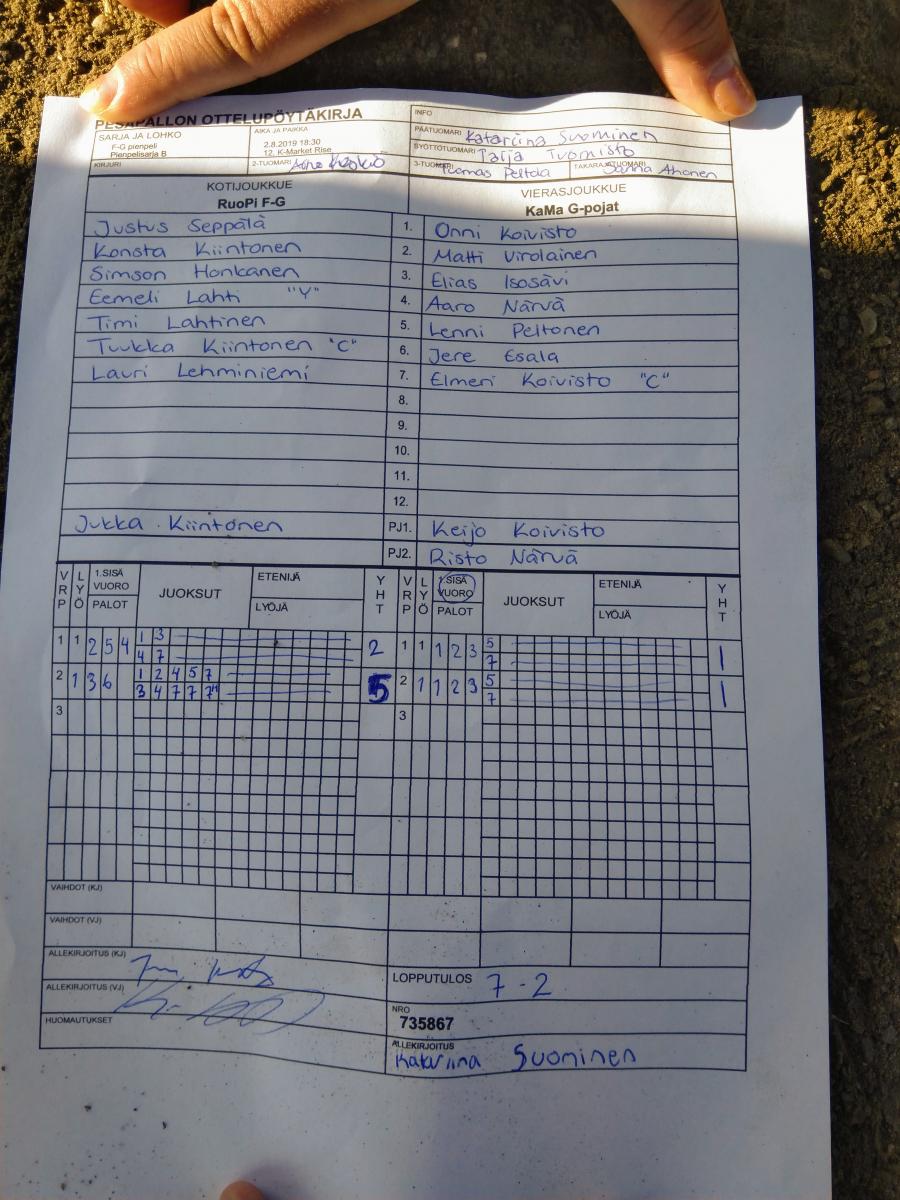 PESÄPALLON OTTELUPÖYTÄKIRJA
INFO
SARJA JA LOHKO
F-G pienpeli
Pienpelisarja B
AIKA JA PAIKKA
2.8.2019 18:30
12, K-Market Rise
PÄÄTUOMARI Katariina Suominen
SYÖTTÖTUOMARI Tarja Tuomisto
KIRJURI
2-TUOMARI
3-TUOMARI Tuomas Peltola
TAKARAJATUOMARI Sanna Ahonen
KOTIJOUKKUE
RuoPi F-G
VIERASJOUKKUE
KaMa G-pojat
Justus Seppälä 1. Onni Koivisto
Konsta Kiintonen 2. Matti Virolainen
Simson Honkanen 3. Elias Isosävi
Eemeli Lahti "Y" 4. Aaro Närvä
Timi Lahtinen 5. Lenni Peltonen
Tuukka Kiintonen "C" 6. Jere Esala
Lauri Lehminiemi 7. Elmeri Koivisto "C"
8.
9.
10.
11.
12.
Jukka Kiintonen PJ1. Keijo Koivisto
PJ2. Risto Närvä
VRP LYÖ 1.SISÄ VUORO PALOT JUOKSUT ETENIJÄ LYÖJÄ YHT VRP LYÖ 1.SISÄ VUORO PALOT JUOKSUT ETENIJÄ LYÖJÄ YHT
1 1 2 5 4 1 3 2 1 1 1 2 3 5 1
4 7 7
2 1 3 6 1 2 4 5 7 5 2 1 1 2 3 5 1
3 4 7 7 7" 7
3 3
VAIHDOT (KJ)
VAIHDOT (VJ)
ALLEKIRJOITUS (KJ)
LOPPUTULOS 7-2
ALLEKIRJOITUS (VJ)
NRO
735867
HUOMAUTUKSET
ALLEKIRJOITUS
Katariina Suominen